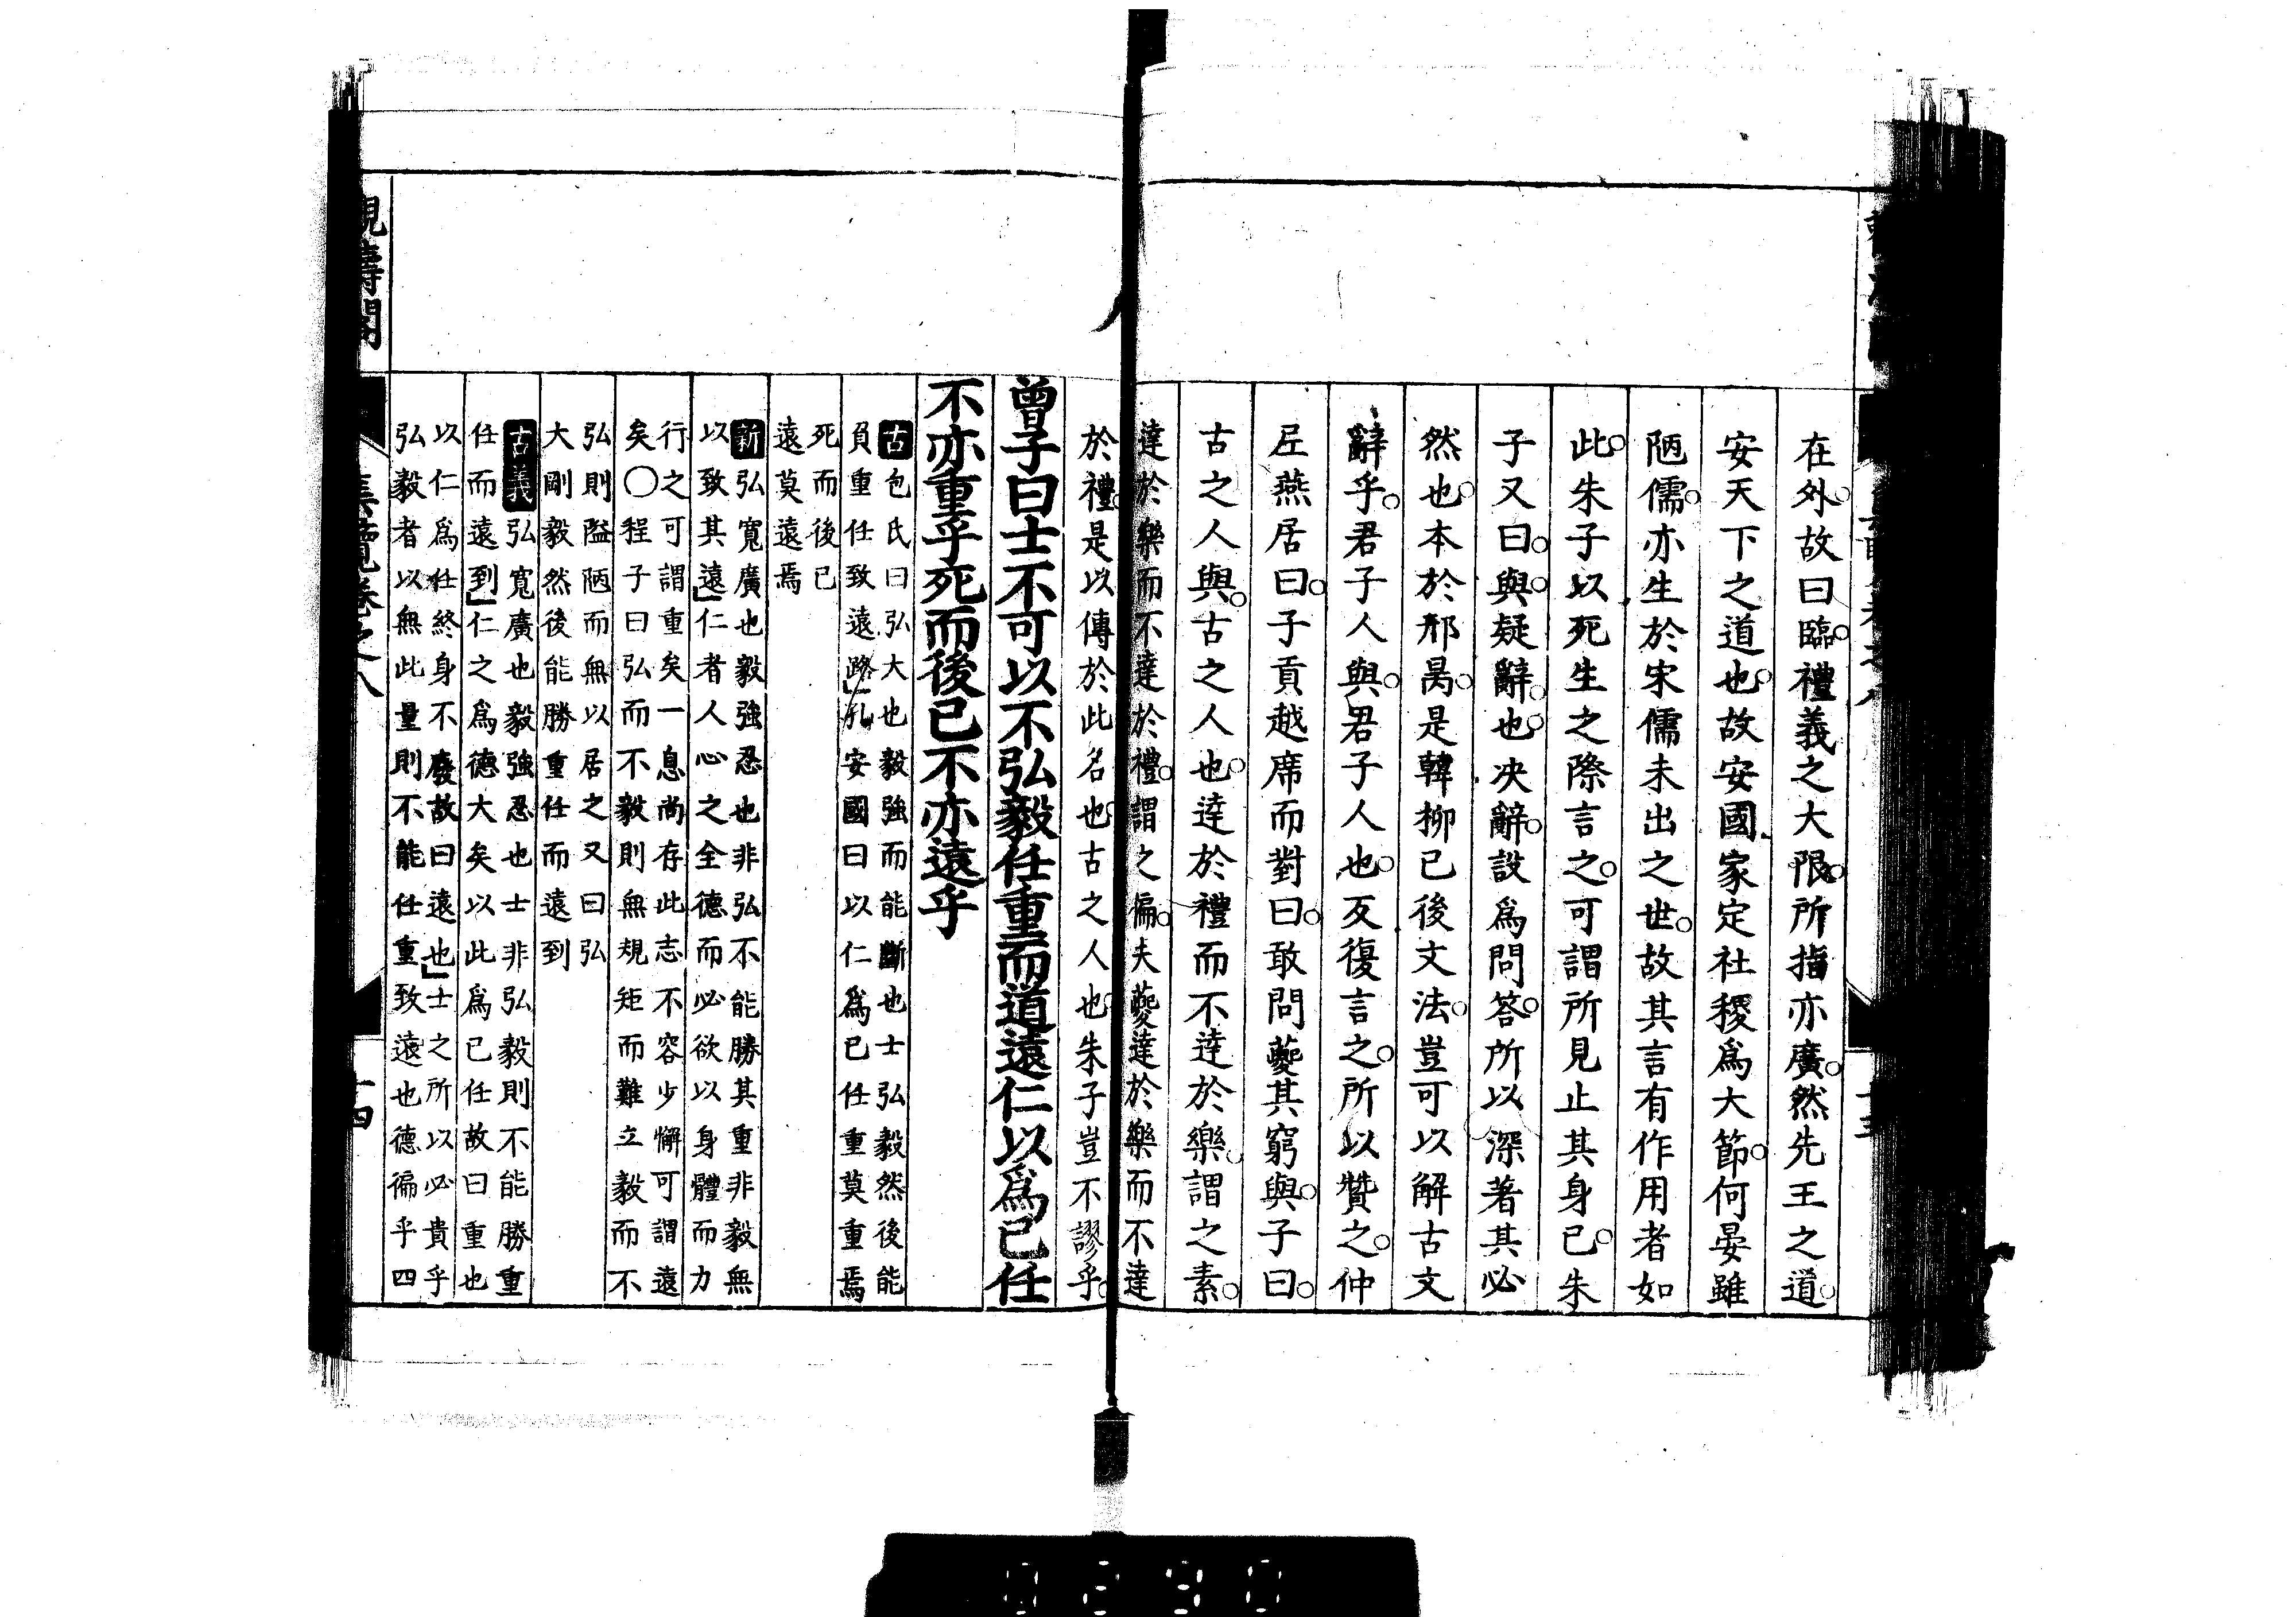 在外故曰臨禮義之大限所指亦廣然先王之道
安天下之道也故安國家定社稷爲大節何晏雖
陋儒亦生於宋儒未出之世故其言有作用者如
此朱子以死生之際言之可謂所見止其身已朱
子又曰與疑辭也决辭設爲問答所以深著其必
然也本於邢昺是韓柳已後文法豈可以解古文
辭乎君子人與君子人也反復言之所以贊之仲
尼燕居曰子貢越席而對曰敢問夔其窮與子曰
古之人與古之人也逹於禮而不逹於樂謂之素
逹於樂而不逹於禮謂之偏夫夔逹於樂而不逹
於禮是以傳於此名也古之人也朱子豈不謬乎
曾子曰士不可以不弘毅任重而道遠仁以爲己任
不亦重乎死而後已不亦遠乎
古包氏曰弘大也毅強而能斷也士弘毅然後能
負重任致遠路孔安國曰以仁爲己任重莫重焉
死而後已
遠莫遠焉
新弘寬廣也毅強忍也非弘不能勝其重非毅無
以致其遠仁者人心之全德而必欲以身體而力
行之可謂重矣一息尚存此志不容少懈可謂遠
矣○程子曰弘而不毅則無規矩而難立毅而不
弘則隘陋而無以居之又曰弘
大剛毅然後能勝重任而遠到
古義弘寬廣也毅強忍也士非弘毅則不能勝重
任而遠到仁之爲德大矣以此爲己任故曰重也
以仁爲任終身不廢故曰遠也士之所以必貴乎
弘毅者以無此量則不能任重致遠也德徧乎四
覽卷之八
十四
0290